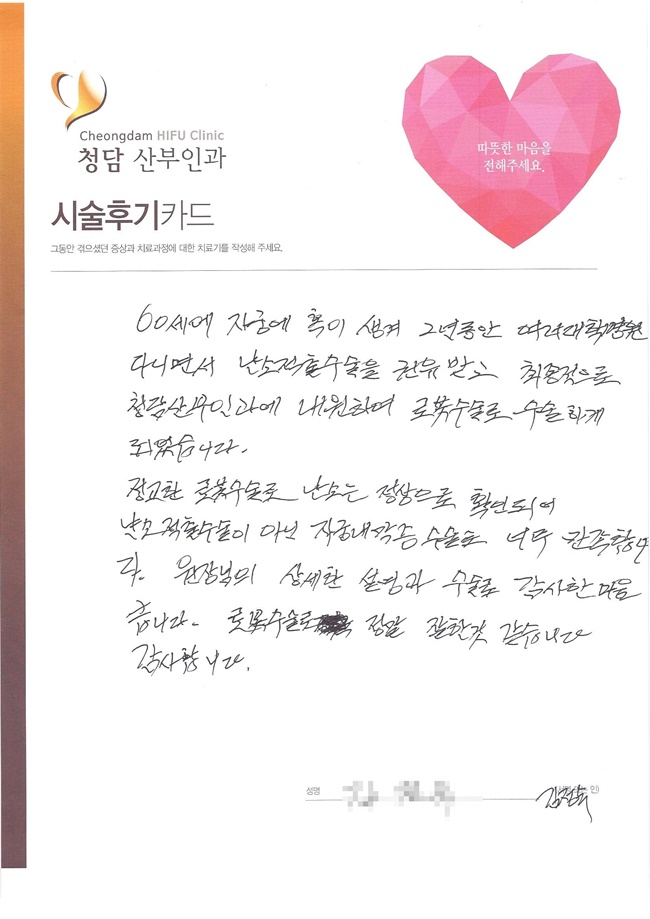 Cheongdam HIFU Clinic
청담 산부인과
따뜻한 마음을
전해주세요.
시술후기카드
그동안 겪으셨던 증상과 치료과정에 대한 치료기를 작성해 주세요.
60세에 자궁에 혹이 생겨 그년동안 여러대학병원
다니면서 난소적출수술을 권유 받고 최종적으로
청담산부인과에 내원하여 로봇수술로 수술하게
되었습니다.
정교한 로봇수술로 난소는 정상으로 확인되어
난소적출수술이 아닌 자궁내막증 수술로 너무 만족합니
다. 원장님의 상세한 설명과 수술로 감사한 마음
즙니다. 로봇수술로 정말 잘한것 같습니다
감사합니다.
성명